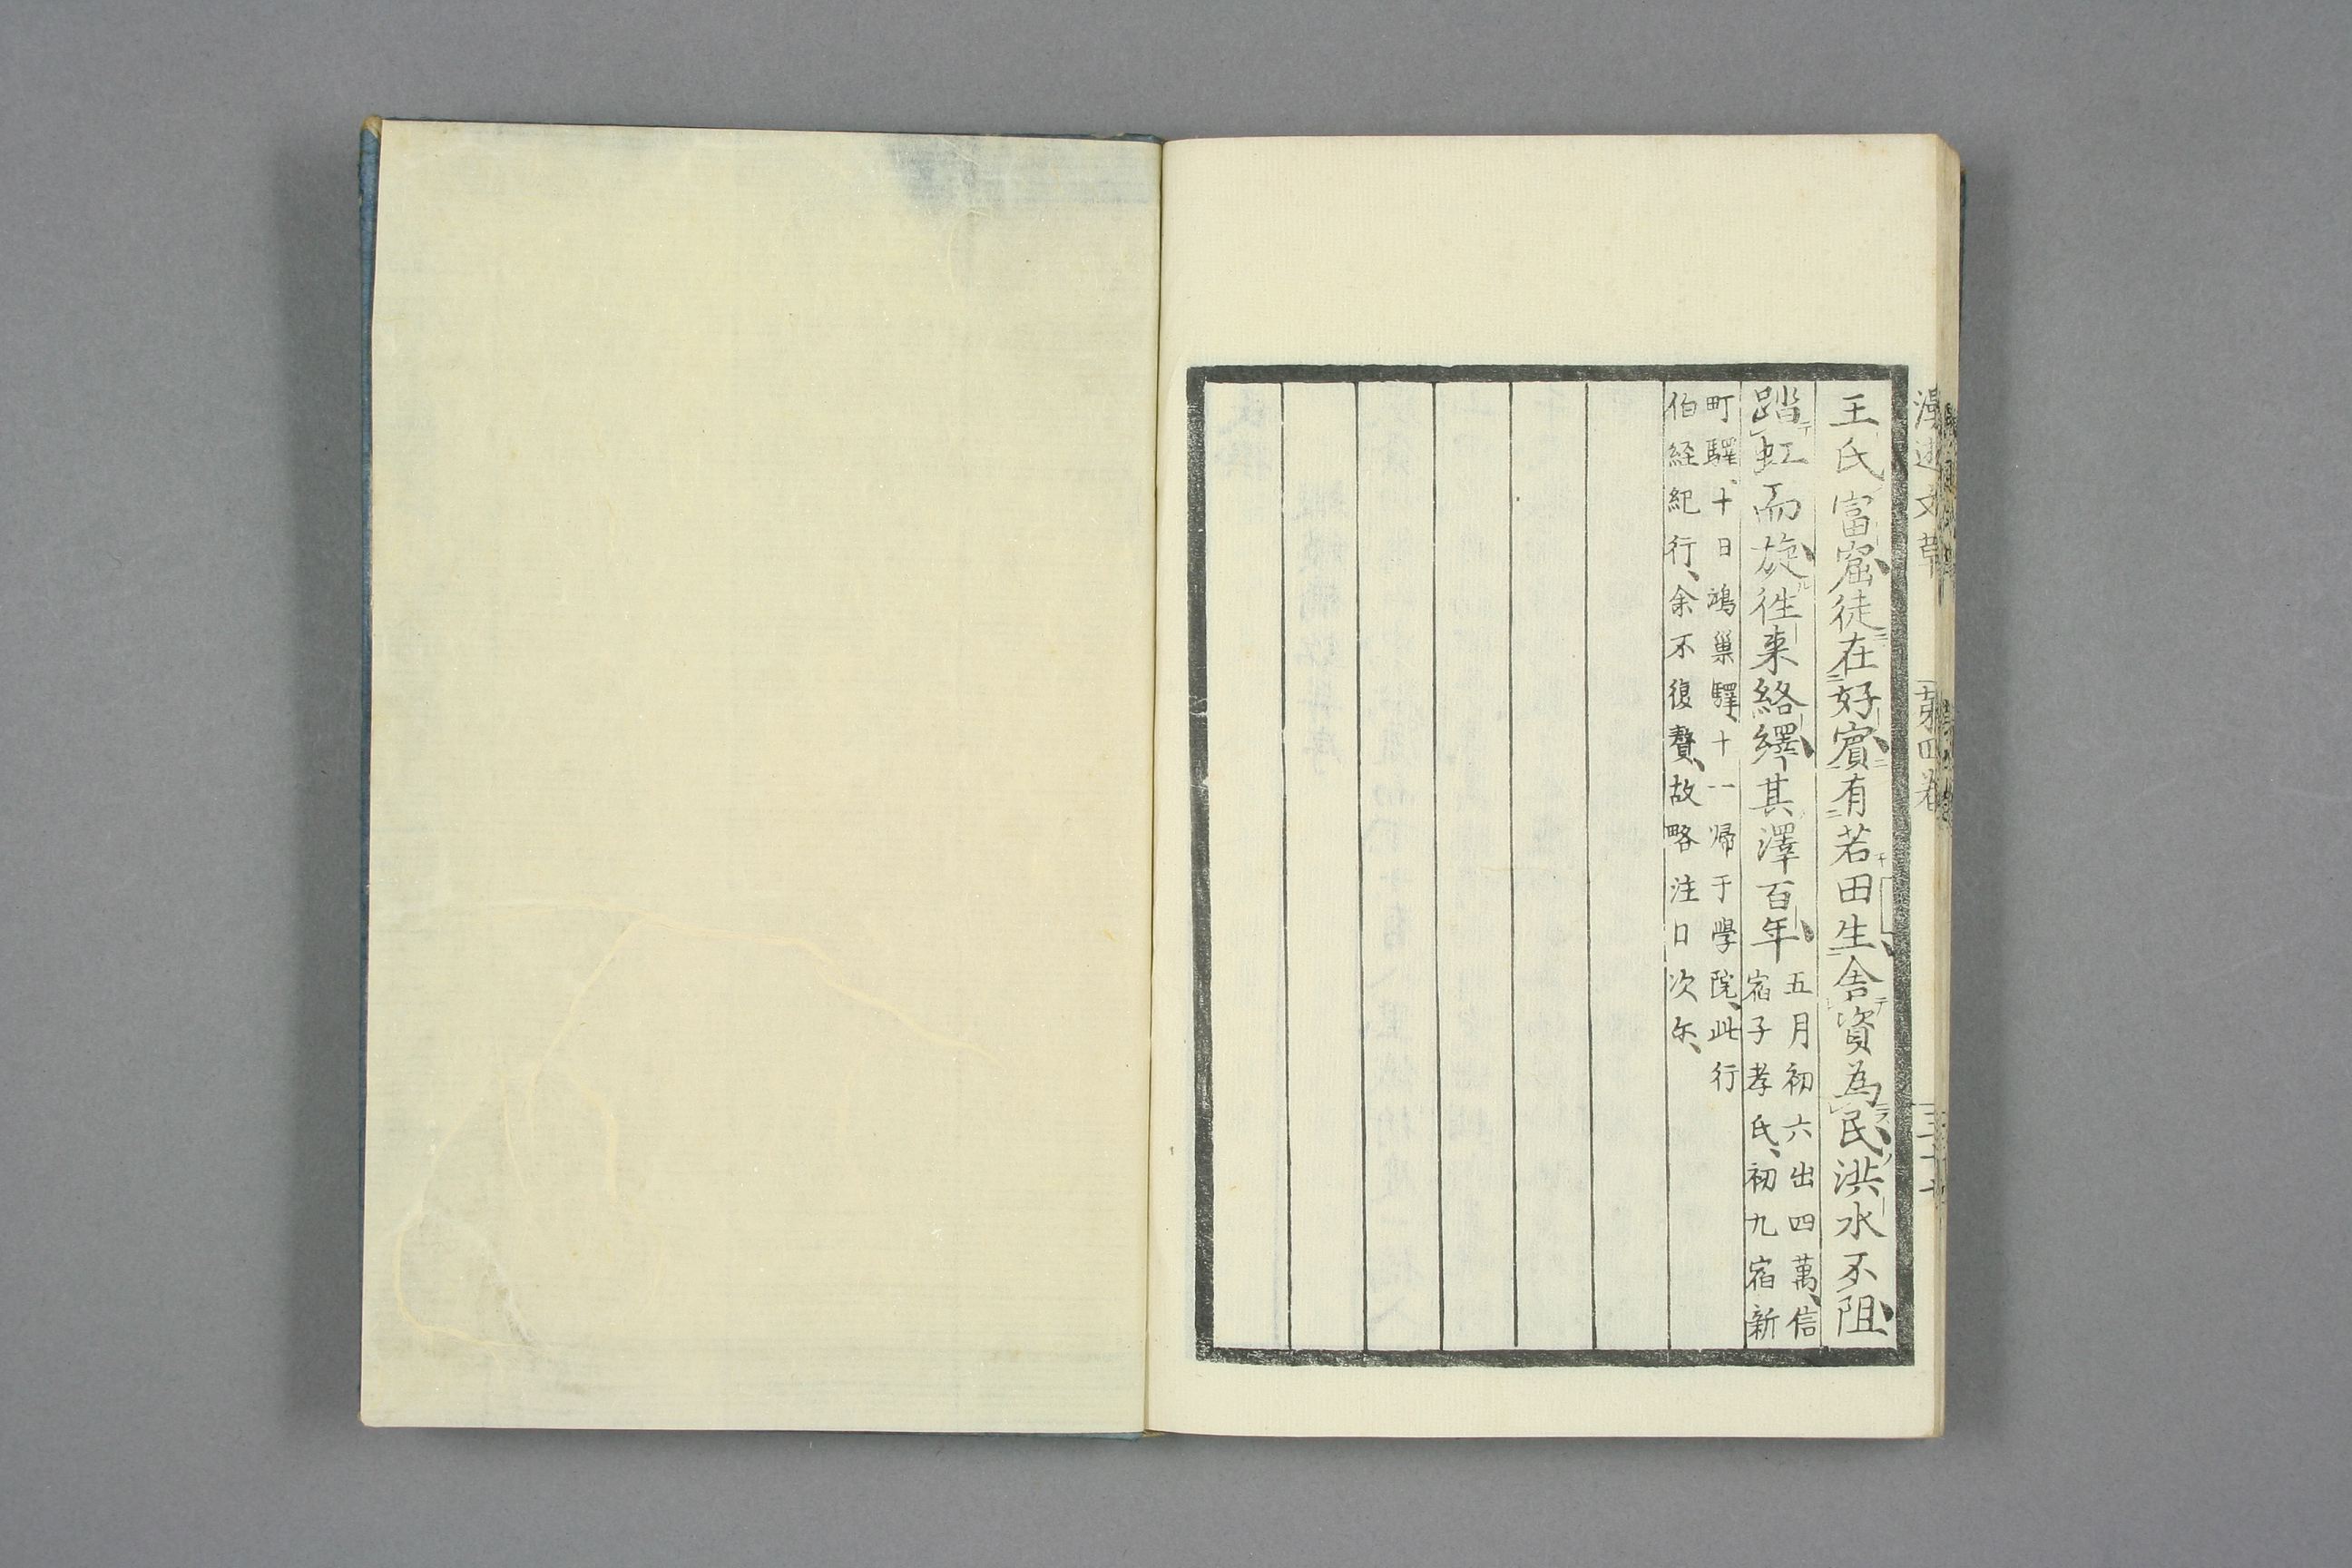 王氏富窟徒在好賓有若田生舍資為民洪水不阻
踏虹而旋徃来絡繹其澤百年
五月初六出四萬信
宿子孝氏初九宿新
町驛十日鴻巢驛十一帰于學院此行
伯経紀行余不復贅故略注日次尓
文草
第四卷